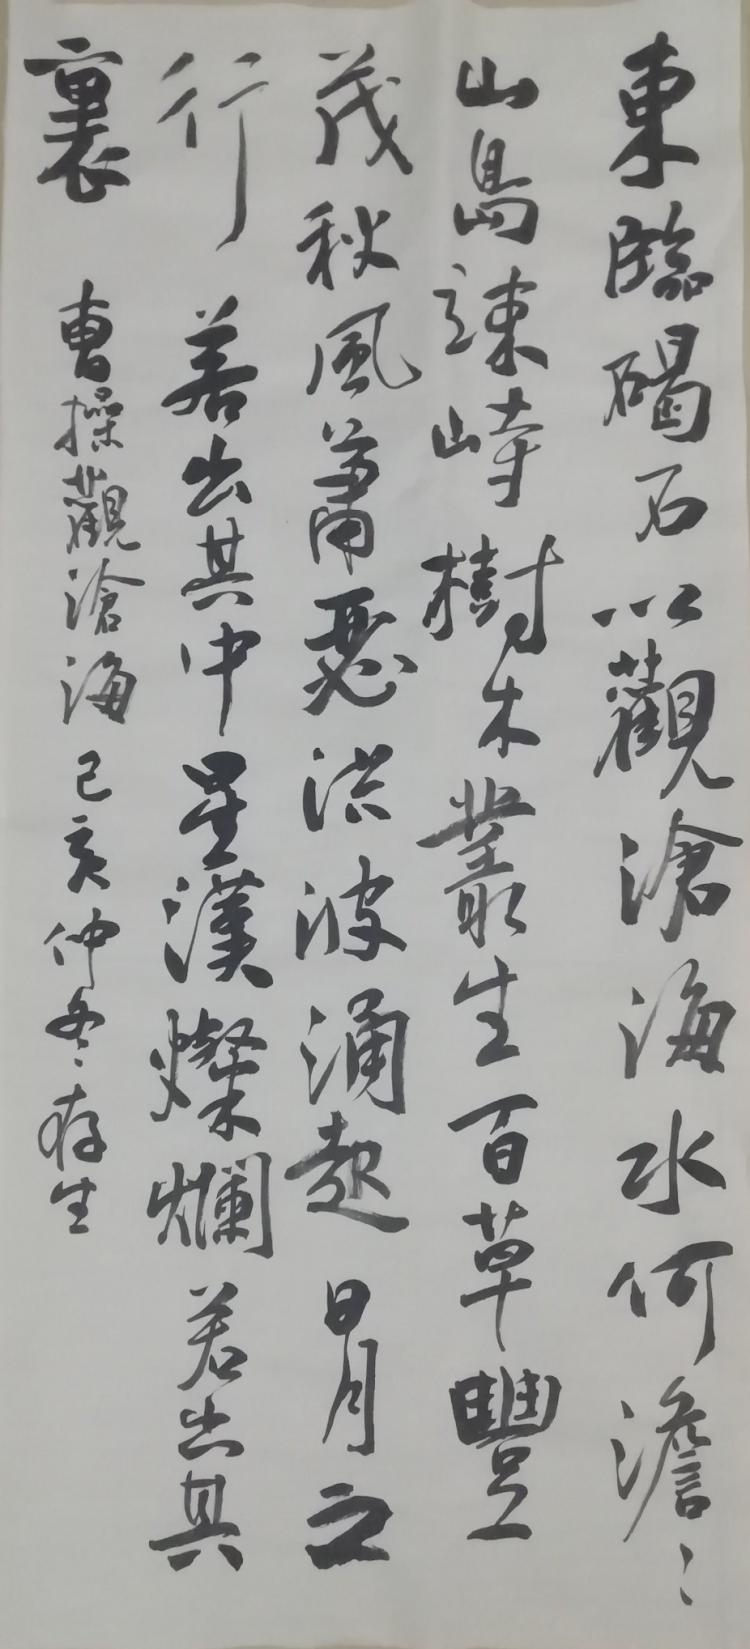 東臨碣石以觀滄海水何澹〻
山島竦峙樹木叢生百草豐
茂秋風蕭瑟洪波涌起日月之
行若出其中星漢燦爛若出其
裏
曹操觀滄海己亥仲冬存生